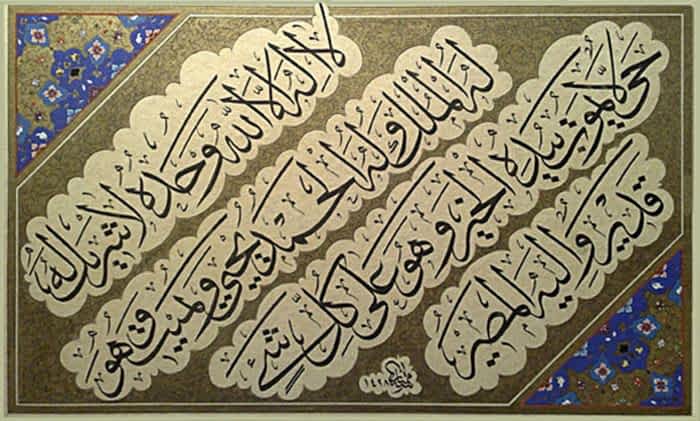 لا إله إلا الله وحده لا شريك له
له الملك وله الحمد يحيي ويميت وهو
حي لا يموت بيده الخير وهو على كل شيء
قدير وإليه المصير
١٤٢٨